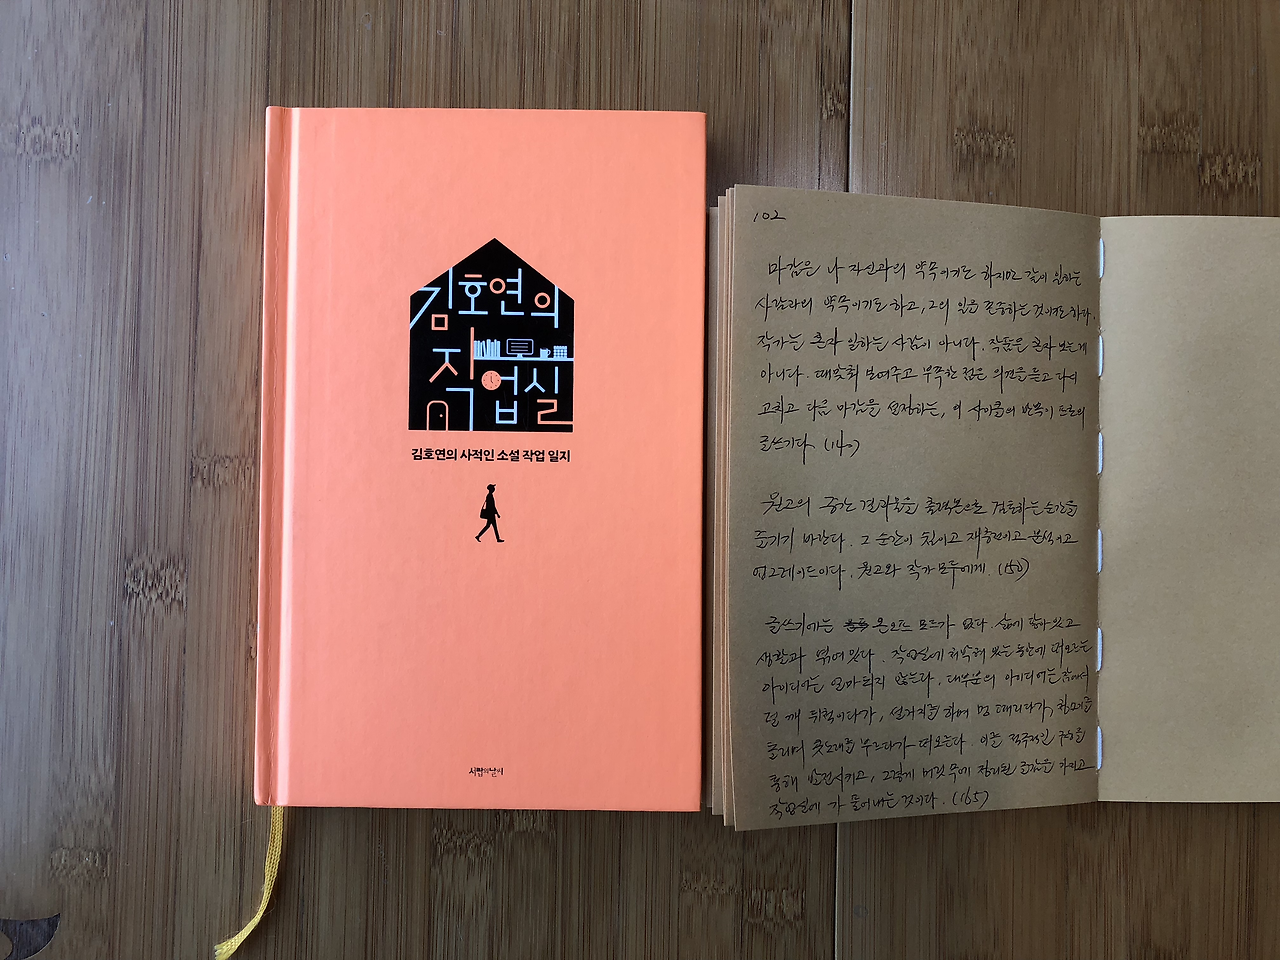 김호연의
작업실
김호연의 사적인 소설 작업 일지
서랍의날씨
102
마감은 나 자신과의 약속이기도 하지만 같이 일하는
사람과의 약속이기도 하고, 그의 일을 존중하는 것이기도 하다.
작가는 혼자 일하는 사람이 아니다. 작품은 혼자 보는 게
아니다. 때맞춰 보여주고 부족한 점은 의견을 듣고 다시
고치고 다음 마감을 설정하는, 이 사이클의 반복이 프로의
글쓰기다. (140)
원고의 중간 결과물을 출력본으로 검토하는 순간을
즐기기 바란다. 그 순간이 휴식이고 재충전이고 분석이고
업그레이드이다. 원고와 작가 모두에게. (150)
글쓰기에는 온오프 모드가 없다. 삶에 닿아 있고
생활과 묶여 있다. 작업실에 처박혀 있는 동안에 떠오르는
아이디어는 얼마되지 않는다. 대부분의 아이디어는 잠에서
덜 깨 뒤척이다가, 설거지를 하며 멍 때리다가, 청소기를
돌리며 콧노래를 부르다가 떠오른다. 이를 적극적인 구상을
통해 발전시키고, 그렇게 머릿속에 정리된 글감을 가지고
작업실에 가 풀어내는 것이다. (165)